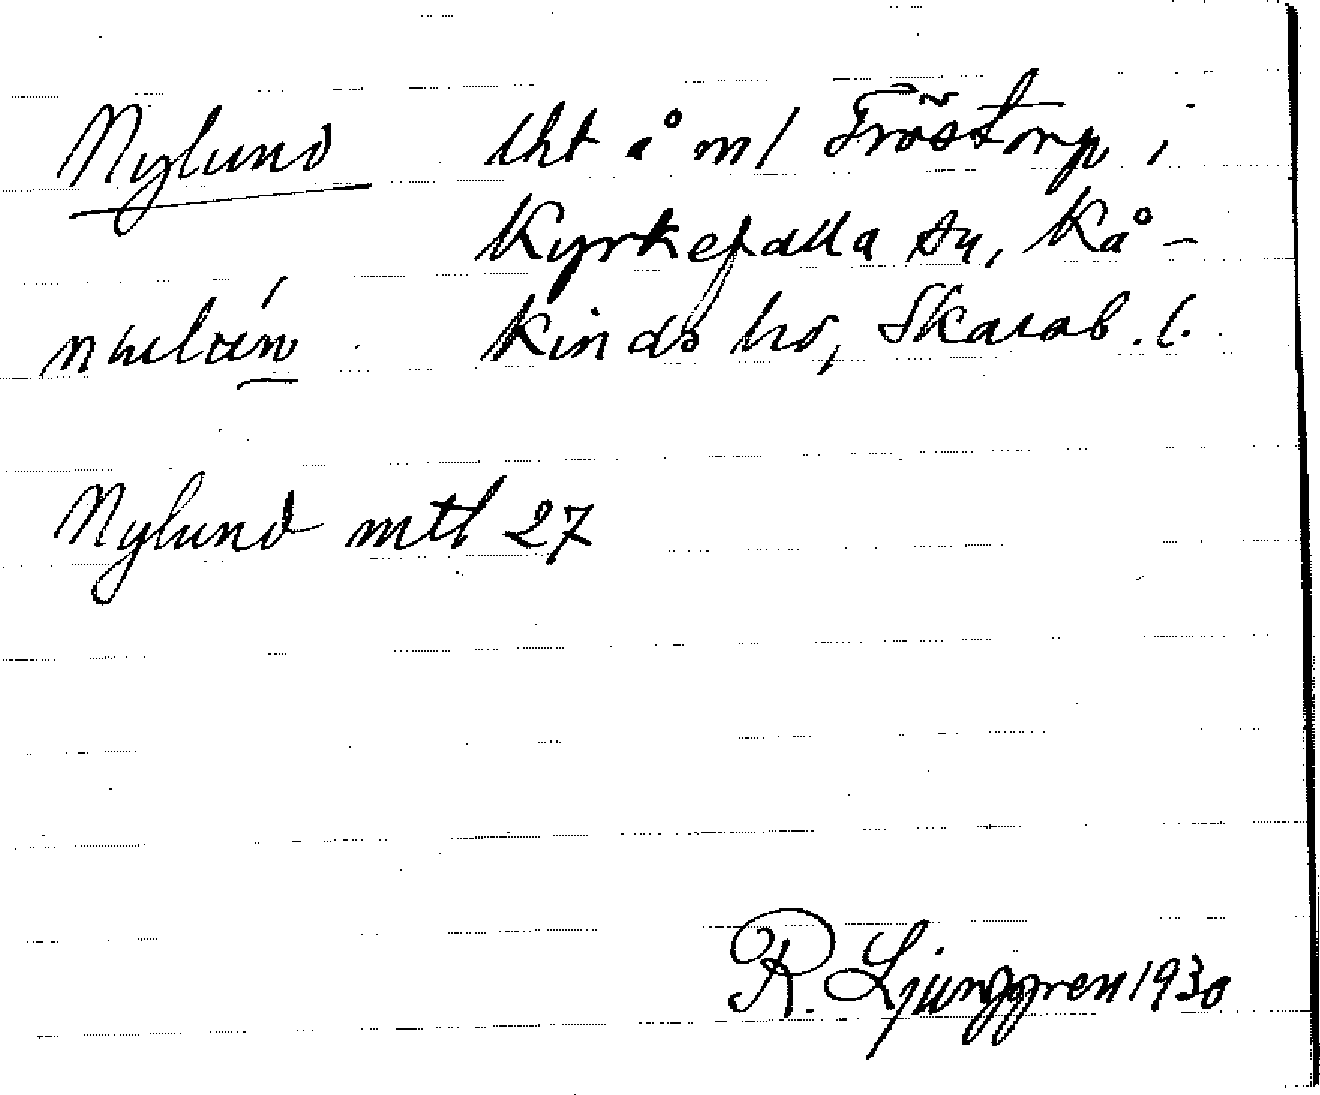 Nylund lht å m/ Fröstorp i
Kyrkefalla sn, Kå-
kinds hd, Skarab. l.
Nylund mtl 27
R. Ljunggren 1930